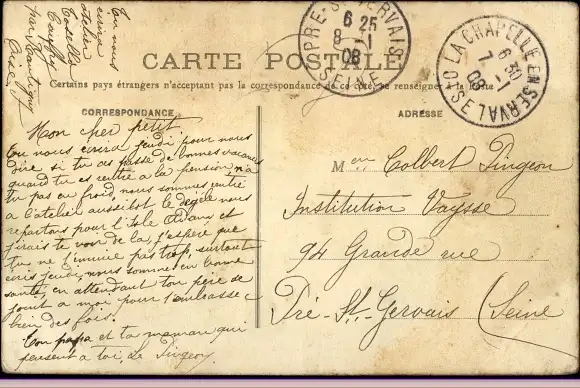 Tu nous
écrira
atelier
Labelle
Oise.
CARTE POSTALE
Certains pays étrangers n'acceptant pas la correspondance de ce côté, se renseigner à la Poste
PRÉ-ST-GERVAIS
6 25
8 -1
08
SEINE
LA CHAPELLE EN SERVAL
6 30
7 -1
08
OISE
CORRESPONDANCE
Mon cher petit.
Tu nous écrira jeudi pour nous
dire si tu as passé de bonnes vacances
quand tu es rentré a la pension, n'a
tu pas eu froid, nous sommes rentré
a l'atelier aussitot le dégele nous
repartons pour l'Isle Adam et
j'irais te voir de la, j'espère que
tu ne t'ennuie pas trop, surtout
écris jeudi, nous sommes en bonne
santé, en attendant ton père se
joint a moi pour t'embrasser
bien des fois.
Ton papa et ta maman qui
pensent a toi, Le Pingeon
ADRESSE
M en Colbert Pingeon
Institution Vaysse
94 Grande rue
Pré-St-Gervais (Seine